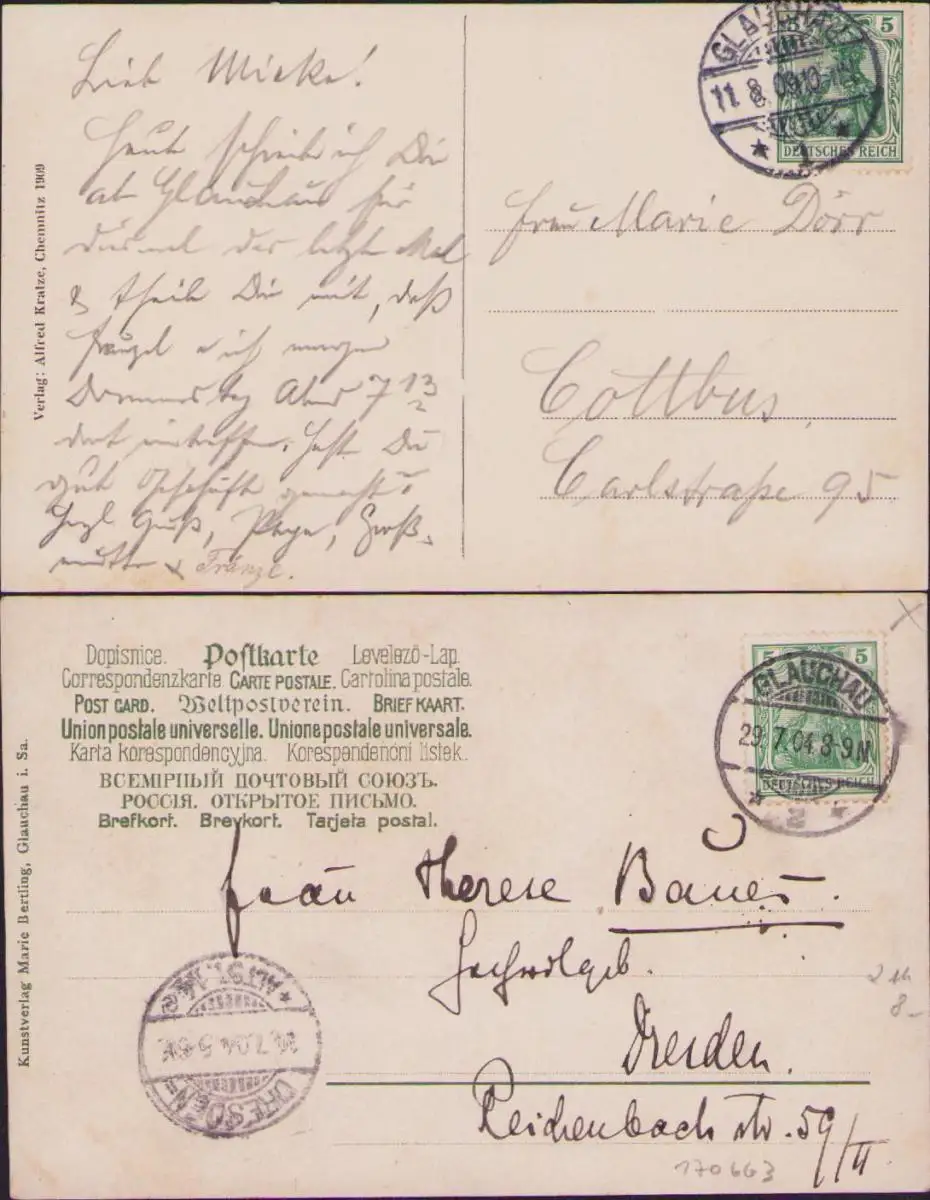 Lieb Mieke!
Heute schreib ich Dir
ab Glauchau für
diesmal das letzte Mal
& theile Dir mit, daß
ich morgen
Donnerstag Abend 7 13
dort eintreffen. Hast Du
gut Geschäft gemacht?
Hrzl Gruß, Groß-
mutter & Fränze.
Verlag: Alfred Kratze, Chemnitz 1909
GLAUCHAU
11 8 09 10-11 N
* 1 *
5
DEUTSCHES REICH
Frau Marie Dörr
Cottbus
Carlstraße 95
Dopisnice. Postkarte Levelező-Lap.
Correspondenzkarte CARTE POSTALE. Cartolina postale.
POST CARD. Weltpostverein. BRIEFKAART.
Union postale universelle. Unione postale universale.
Karta korespondencyjna. Korespondenční lístek.
ВСЕМІРНЫЙ ПОЧТОВЫЙ СОЮЗЪ.
РОССІЯ. ОТКРЫТОЕ ПИСЬМО.
Brefkort. Brevkort. Tarjeta postal.
Kunstverlag Marie Bertling, Glauchau i. Sa.
5 5
GLAUCHAU
29.7.04.8-9N
* 2 *
DEUTSCHES REICH
Frau Therese Bauer.
Hochwolgeb.
Dresden.
Reichenbachstr. 59/II
DRESDEN-
ALTST.
7.04.5-6
8-
170663